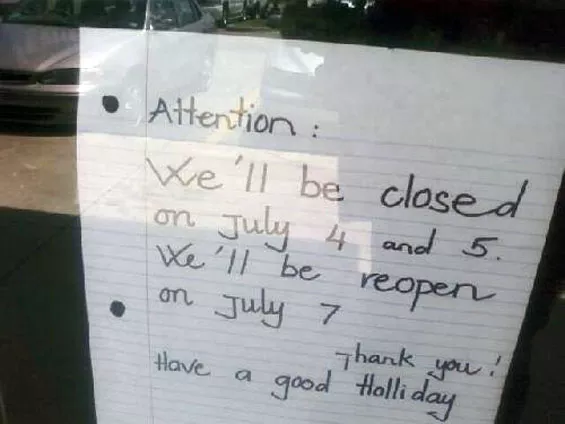 Attention :
We'll be closed
on July 4 and 5.
We'll be reopen
on July 7
Thank you!
Have a good Holliday